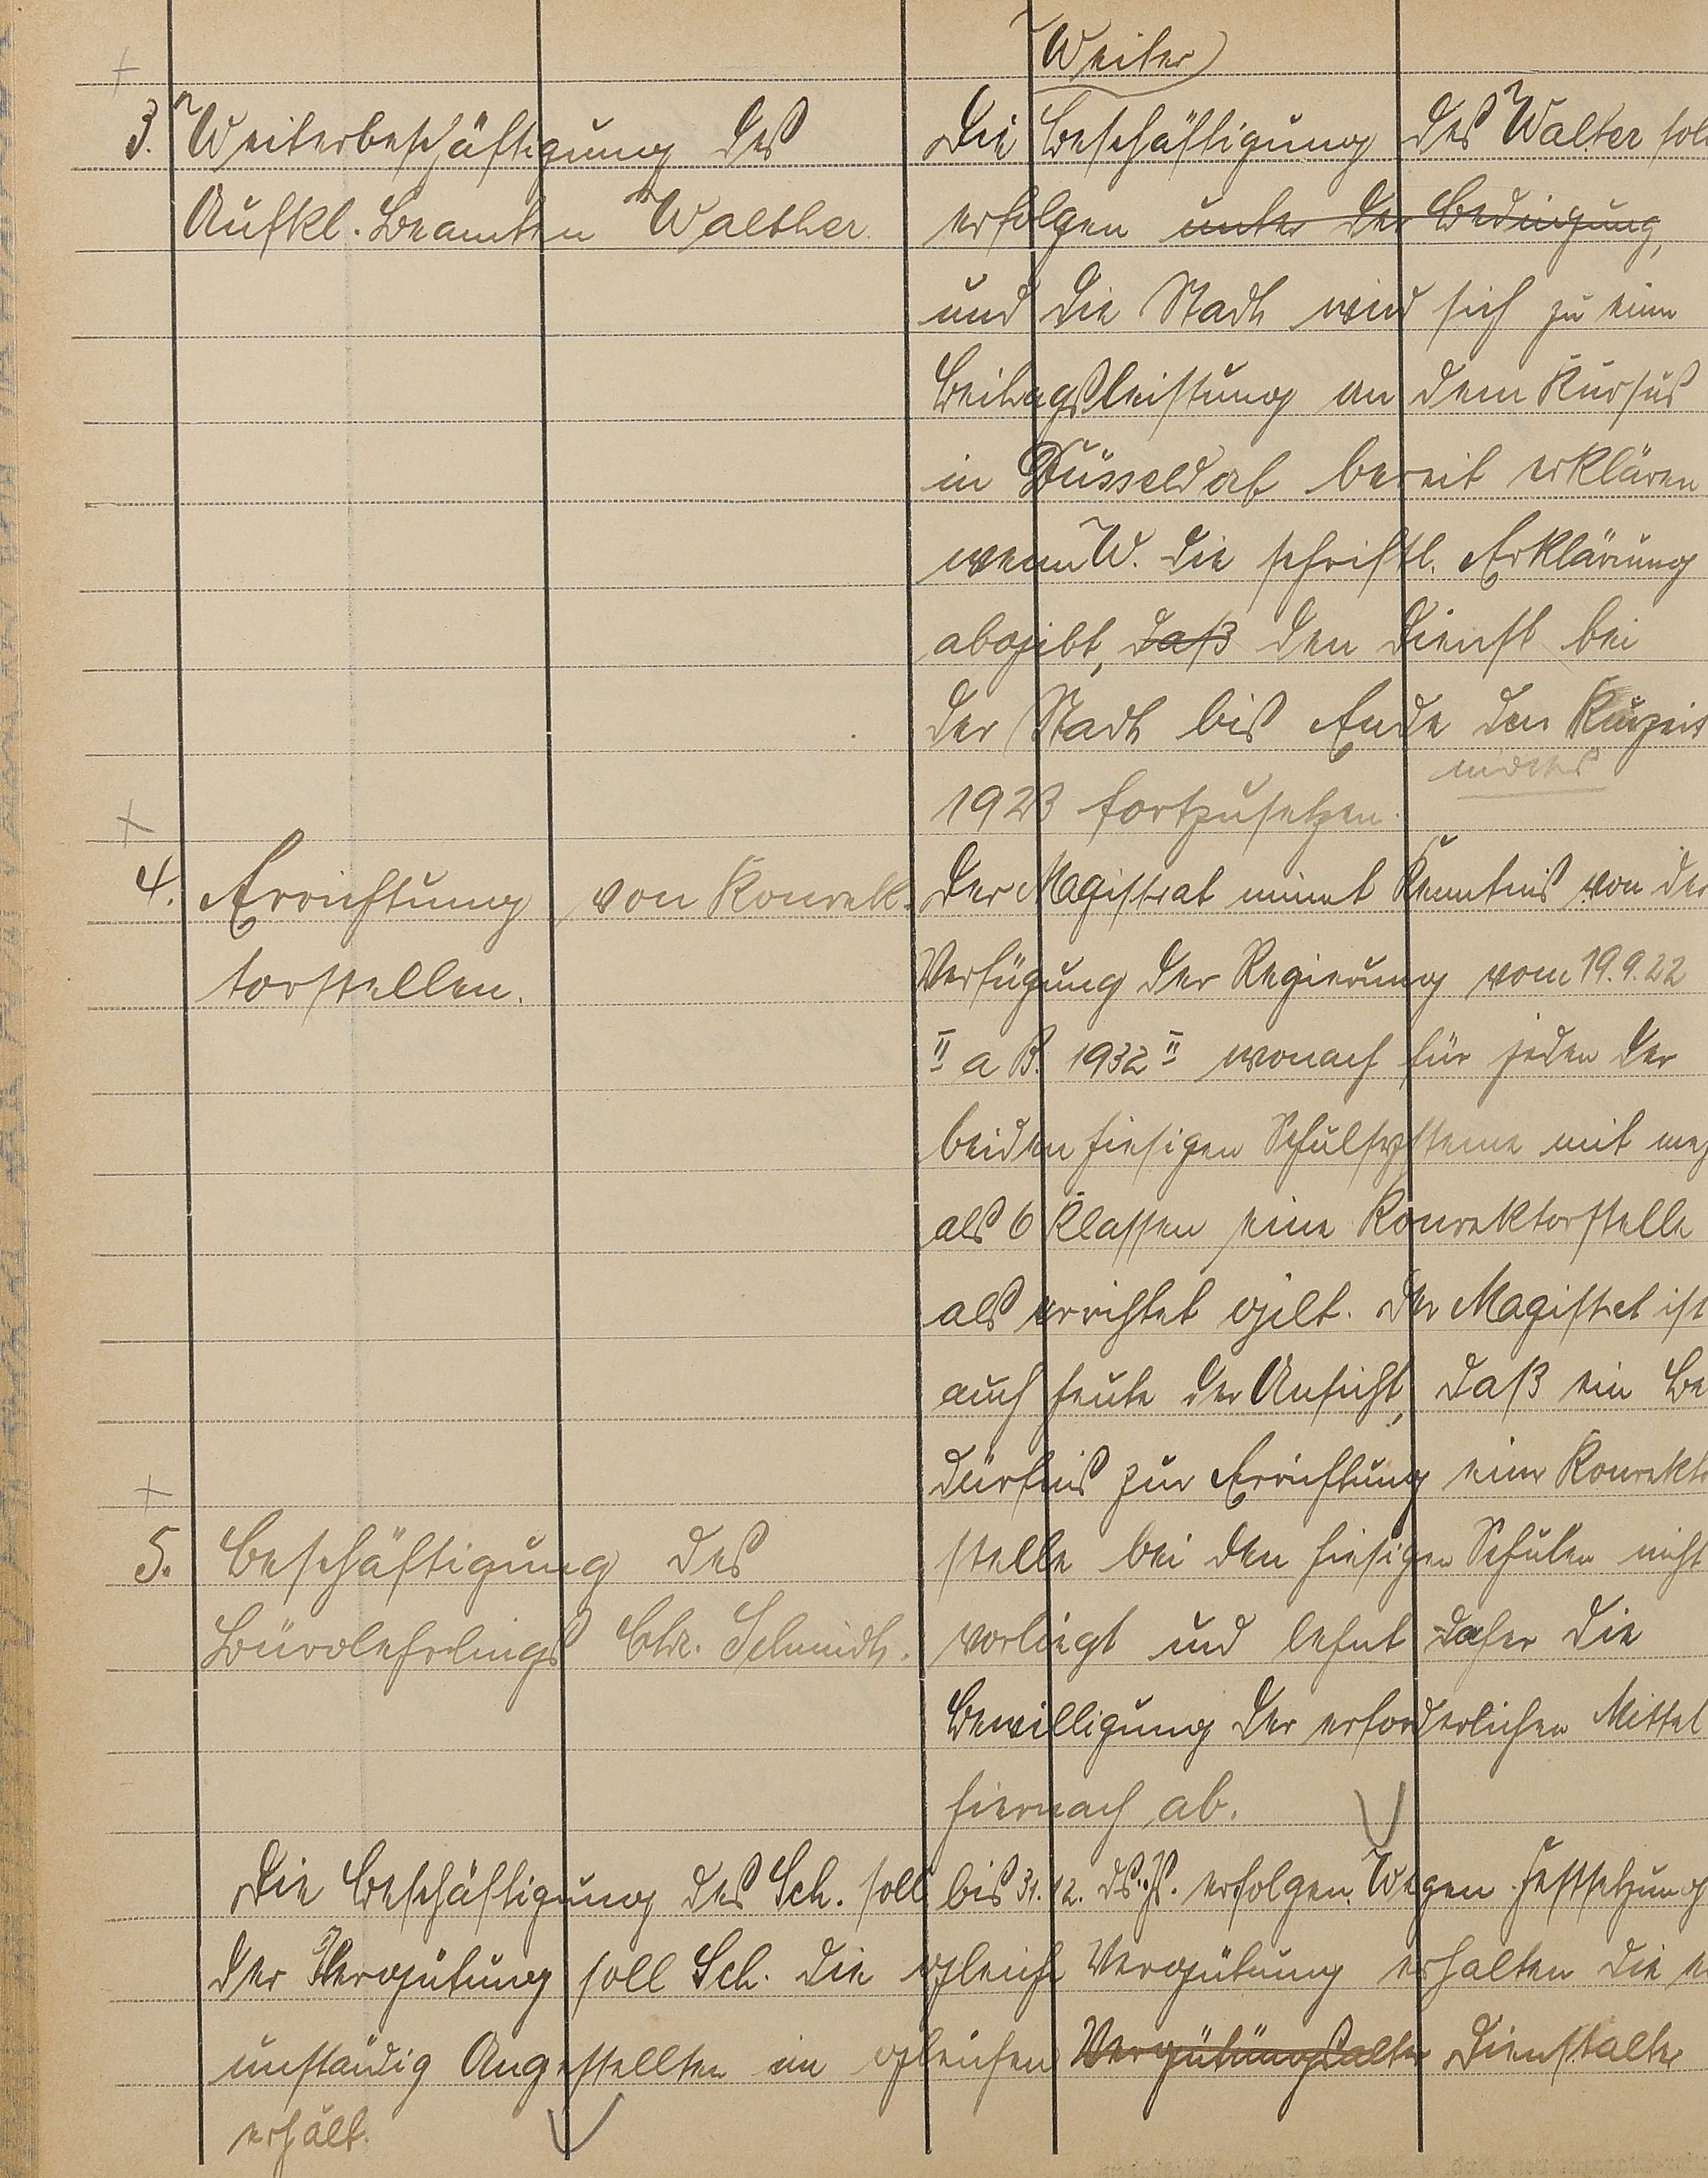 Weiter
3. Weiterbeschäftigung des
Aufkl. Beamten Walther.
Die Beschäftigung des Walter soll
erfolgen unter der Bedingung,
und die Stadt wird sich zu einer
Beitragsleistung an dem Kursus
in Düsseldorf bereit erklären
wenn W. die schriftl. Erklärung
abgibt, daß den Dienst bei
der Stadt bis Ende der Kurzeit
1923 fortzusetzen.
4. Errichtung von Konrek-
torstellen.
Der Magistrat nimmt Kenntnis von der
Verfügung der Regierung vom 19.9.22
II a B. 1932 II wonach für jeden der
beiden hiesigen Schulsysteme mit meh
als 6 Klassen eine Konrektorstelle
als errichtet gilt. Der Magistrat ist
auch heute der Ansicht, daß ein Be
dürfnis zur Errichtung einer Konrekto
stelle bei den hiesigen Schulen nicht
vorliegt und lehnt daher die
Bewilligung der erforderlichen Mittel
hiernach ab.
5. Beschäftigung des
Bürolehrlings Chr. Schmidt.
Die Beschäftigung des Sch. soll bis 31.12. ds. Js. erfolgen. Wegen Festsetzung
der Vergütung soll Sch. die gleiche Vergütung erhalten die e
unständig Angestellten im gleichen Vergütungsalter Dienstalter
erhält.